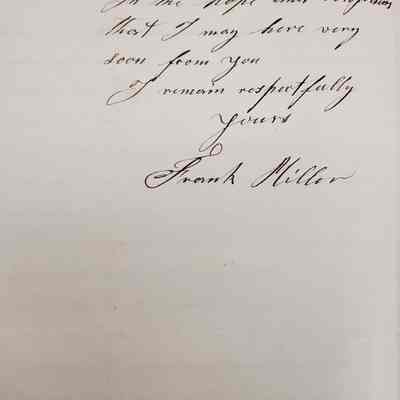 In the hope and
that I may here very
soon from you
I remain respectfully
yours
Frank Miller